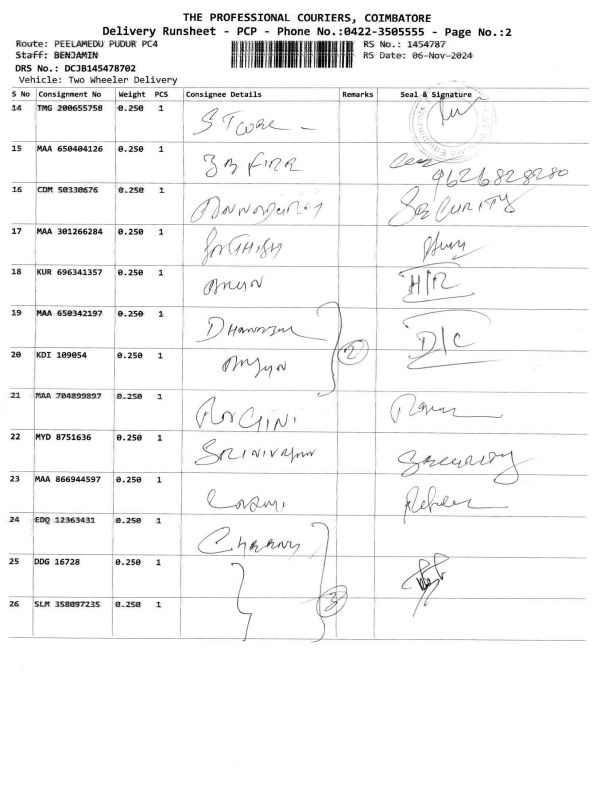 THE PROFESSIONAL COURIERS, COIMBATORE
Delivery Runsheet - PCP - Phone No.:0422-3505555 - Page No.:2
Route: PEELAMEDU PUDUR PC4 RS No.: 1454787
Staff: BENJAMIN RS Date: 06-Nov-2024
DRS No.: DCJB145478702
Vehicle: Two Wheeler Delivery
S No Consignment No Weight PCS Consignee Details Remarks Seal & Signature
14 TMG 200655758 0.250 1 STCORE
15 MAA 650404126 0.250 1 3B FIRE
9626828280
16 CDM 50330676 0.250 1 SECURITY
17 MAA 301266284 0.250 1
18 KUR 696341357 0.250 1 H/R
19 MAA 650342197 0.250 1
20 KDI 109054 0.250 1 2 D/C
21 MAA 704899897 0.250 1 RAGINI
22 MYD 8751636 0.250 1 SRINIVASAN Security
23 MAA 866944597 0.250 1
24 EDQ 12363431 0.250 1
25 DDG 16728 0.250 1
26 SLM 358097235 0.250 1 3